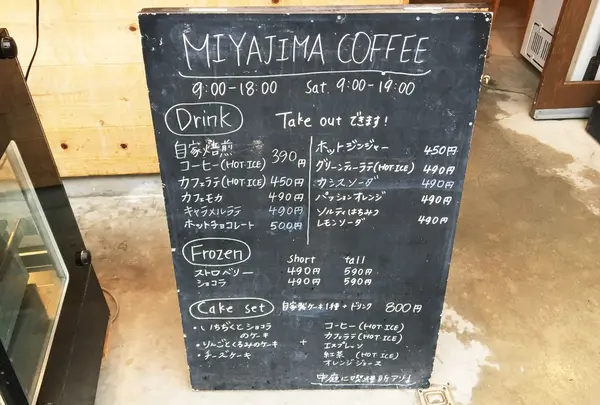 MIYAJIMA COFFEE
9:00-18:00 Sat. 9:00-19:00
Drink Take out できます!
自家焙煎
コーヒー(HOT・ICE) 390円
カフェラテ(HOT・ICE) 450円
カフェモカ 490円
キャラメルラテ 490円
ホットチョコレート 500円
ホットジンジャー 450円
グリーンティーラテ(HOT・ICE) 490円
カシスソーダ 490円
パッションオレンジ 490円
ソルティはちみつ
レモンソーダ 490円
Frozen short tall
ストロベリー 490円 590円
ショコラ 490円 590円
Cake set 自家製ケーキ1種 + ドリンク 800円
・いちぢくとショコラ
のケーキ
・りんごとくるみのケーキ
・チーズケーキ
+
コーヒー(HOT・ICE)
カフェラテ(HOT・ICE)
エスプレッソ
紅茶 (HOT・ICE)
オレンジジュース
中庭に喫煙所アリ〼